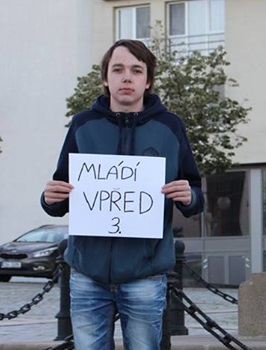 MLÁDÍ
VPŘED
3.